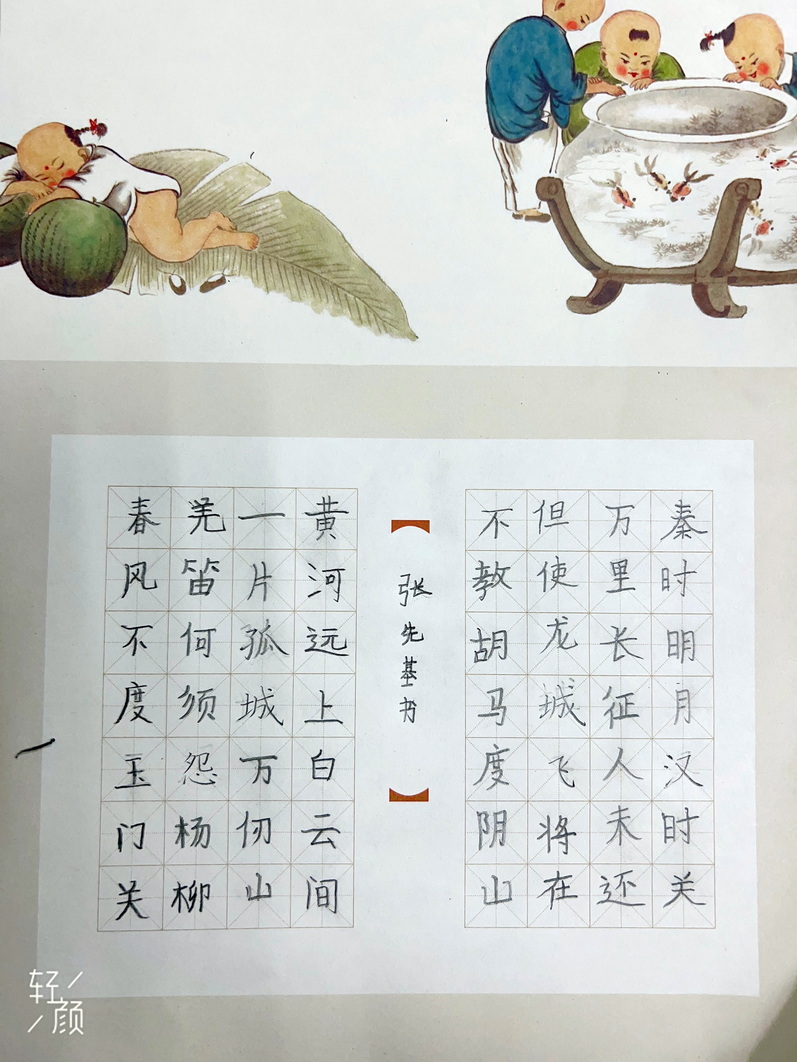 秦时明月汉时关
万里长征人未还
但使龙城飞将在
不教胡马度阴山
张先基书
黄河远上白云间
一片孤城万仞山
羌笛何须怨杨柳
春风不度玉门关
轻颜